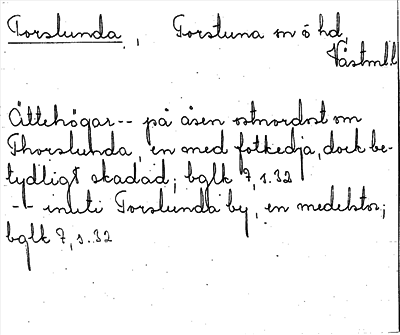 Torslunda, Torstuna sn ö hd,
Västmll
Ättehögar -- på åsen ostnordost om
Thorslunda, en med fotkedja, dock be-
tydligt skadad; bglk 7, s. 32
-- inuti Torslunda by, en medelstor;
bglk 7, s. 32